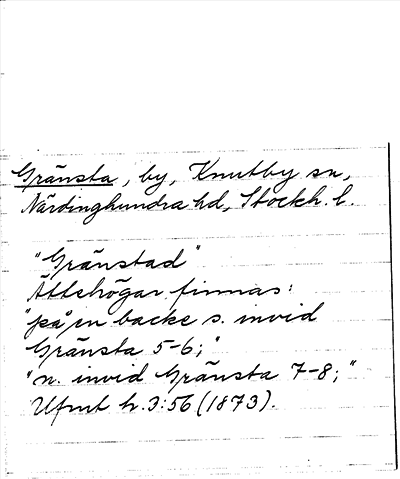 Gränsta, by, Knutby sn,
Närdinghundra hd, Stockh. l.
"Gränstad"
Ättehögar finnas:
"på en backe s. invid
Gränsta 5-6;"
"n. invid Gränsta 7-8;"
Ufmt h.3:56 (1873).